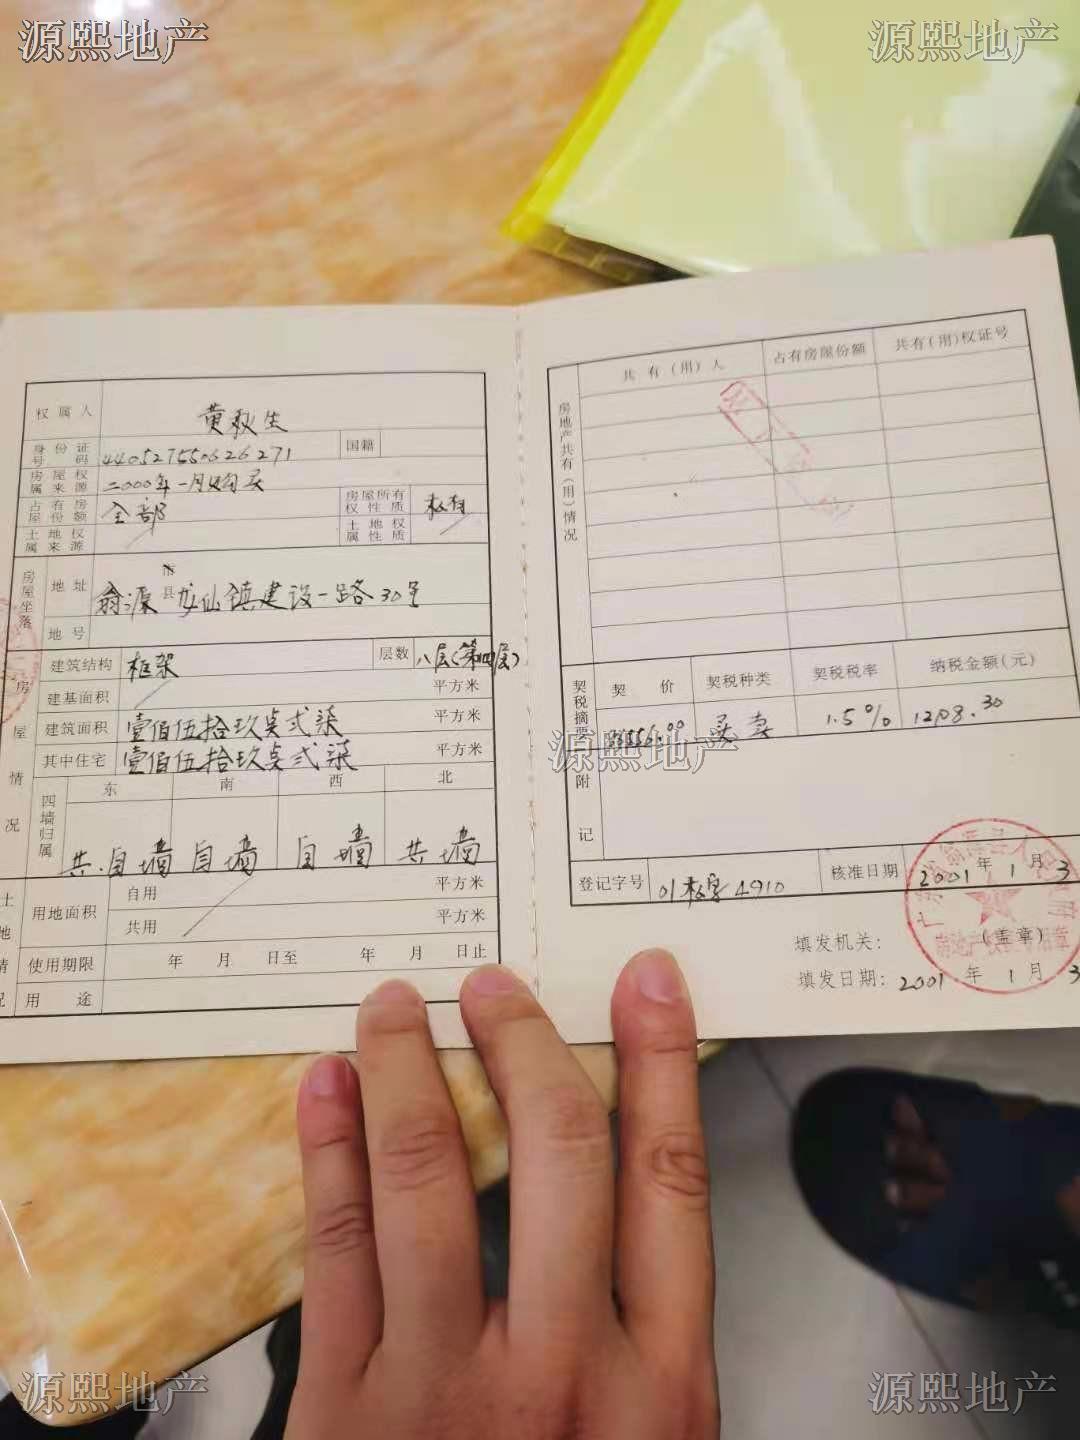 源熙地产 源熙地产
权属人 黄秋生
身份证号码 440527550626271 国籍
房屋权属来源 二000年一月购买
占有房屋份额 全部 房屋所有权性质 私有
土地权属来源 土地权属性质
房屋坐落 地址 翁源 市县 龙仙镇建设一路30号
地号
房屋情况 建筑结构 框架 层数 八层(第四层)
建基面积 平方米
建筑面积 壹佰伍拾玖点弍柒 平方米
其中住宅 壹佰伍拾玖点弍柒 平方米
四墙归属 东 南 西 北
共.自墙 自墙 自墙 共墙
土地情况 用地面积 自用 平方米
共用 平方米
使用期限 年 月 日至 年 月 日止
用途
房地产共有(用)情况 共有(用)人 占有房屋份额 共有(用)权证号
契税摘要 契价 契税种类 契税税率 纳税金额(元)
买卖 1.5% 1208.30
源熙地产
附记
登记字号 01私字4910 核准日期 2001年1月3
填发机关: (盖章)
填发日期: 2001年1月3
源熙地产 源熙地产